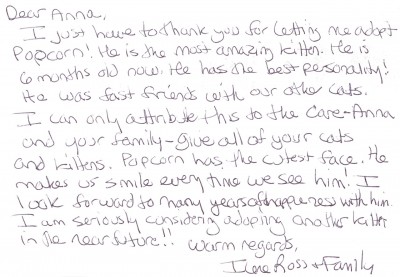 Dear Anna,
I just have to thank you for letting me adopt
Popcorn! He is the most amazing kitten. He is
6 months old now. He has the best personality!
He was fast friends with our other cats.
I can only attribute this to the care-Anna
and your family-give all of your cats
and kittens. Popcorn has the cutest face. He
makes us smile every time we see him! I
look forward to many years of happiness with him.
I am seriously considering adopting another kitten
in the near future!! Warm regards,
Ross + Family